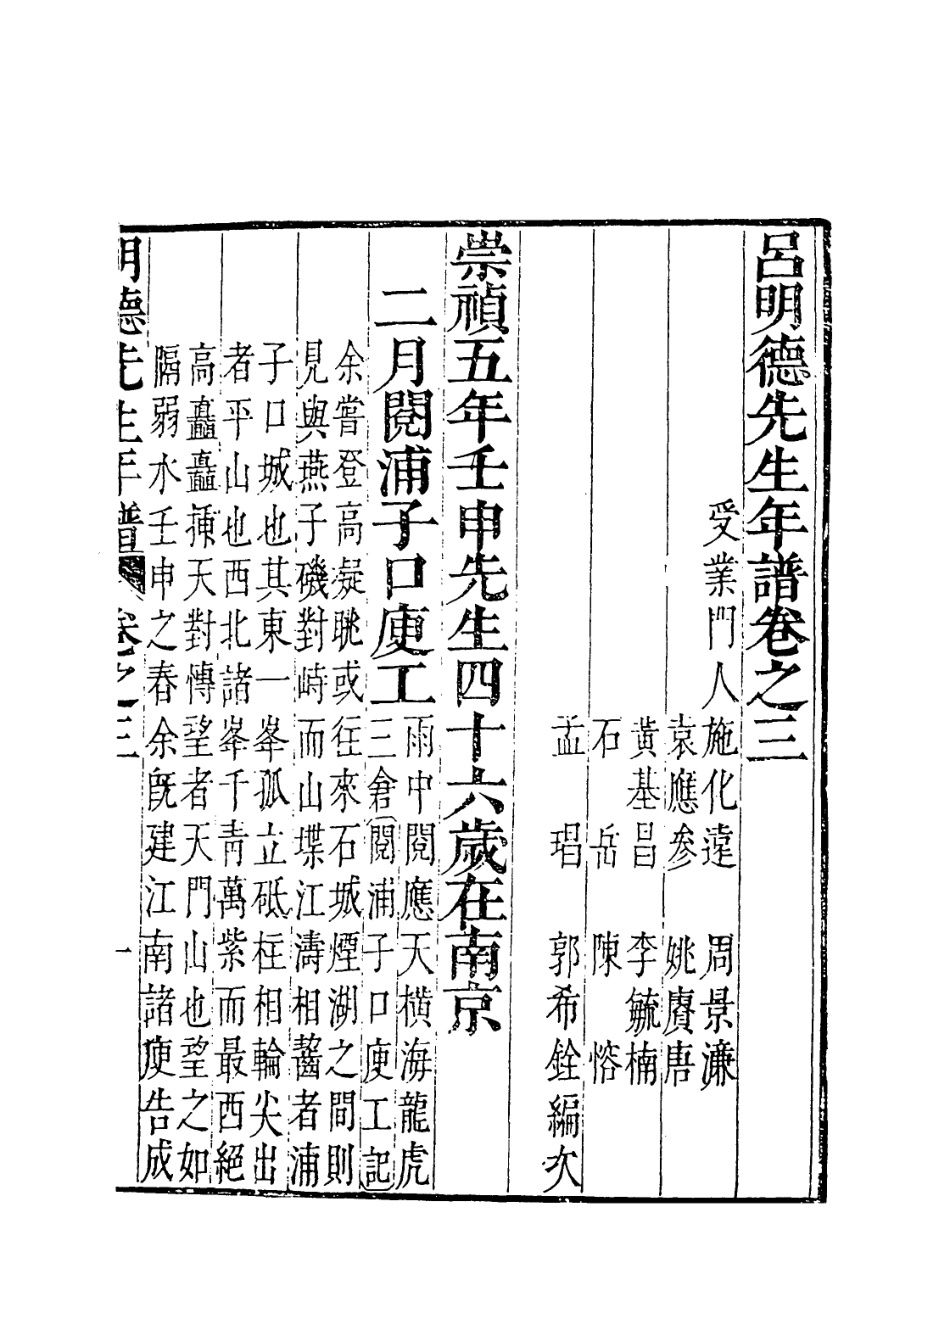 呂明德先生年譜卷之三
受業門人施化遠　周景濂
袁應參　姚賡唐
黃基昌　李毓楠
石　岳　陳　愹
孟　琩　郭希銓編次
崇禎五年壬申先生四十六歲在南京
二月閱浦子口庾工
雨中閱應天橫海龍虎
三倉閱浦子口庾工記
余嘗登高凝眺或往來石城煙湖之間則
見與燕子磯對峙而山堞江濤相齧者浦
子口城也其東一峯孤立砥柱相輪尖出
者平山也西北諸峯千青萬紫而最西絕
高矗矗揷天對慱望者天門山也望之如
隔弱水壬申之春余旣建江南諸庾告成
明德先生年譜　卷之三　一